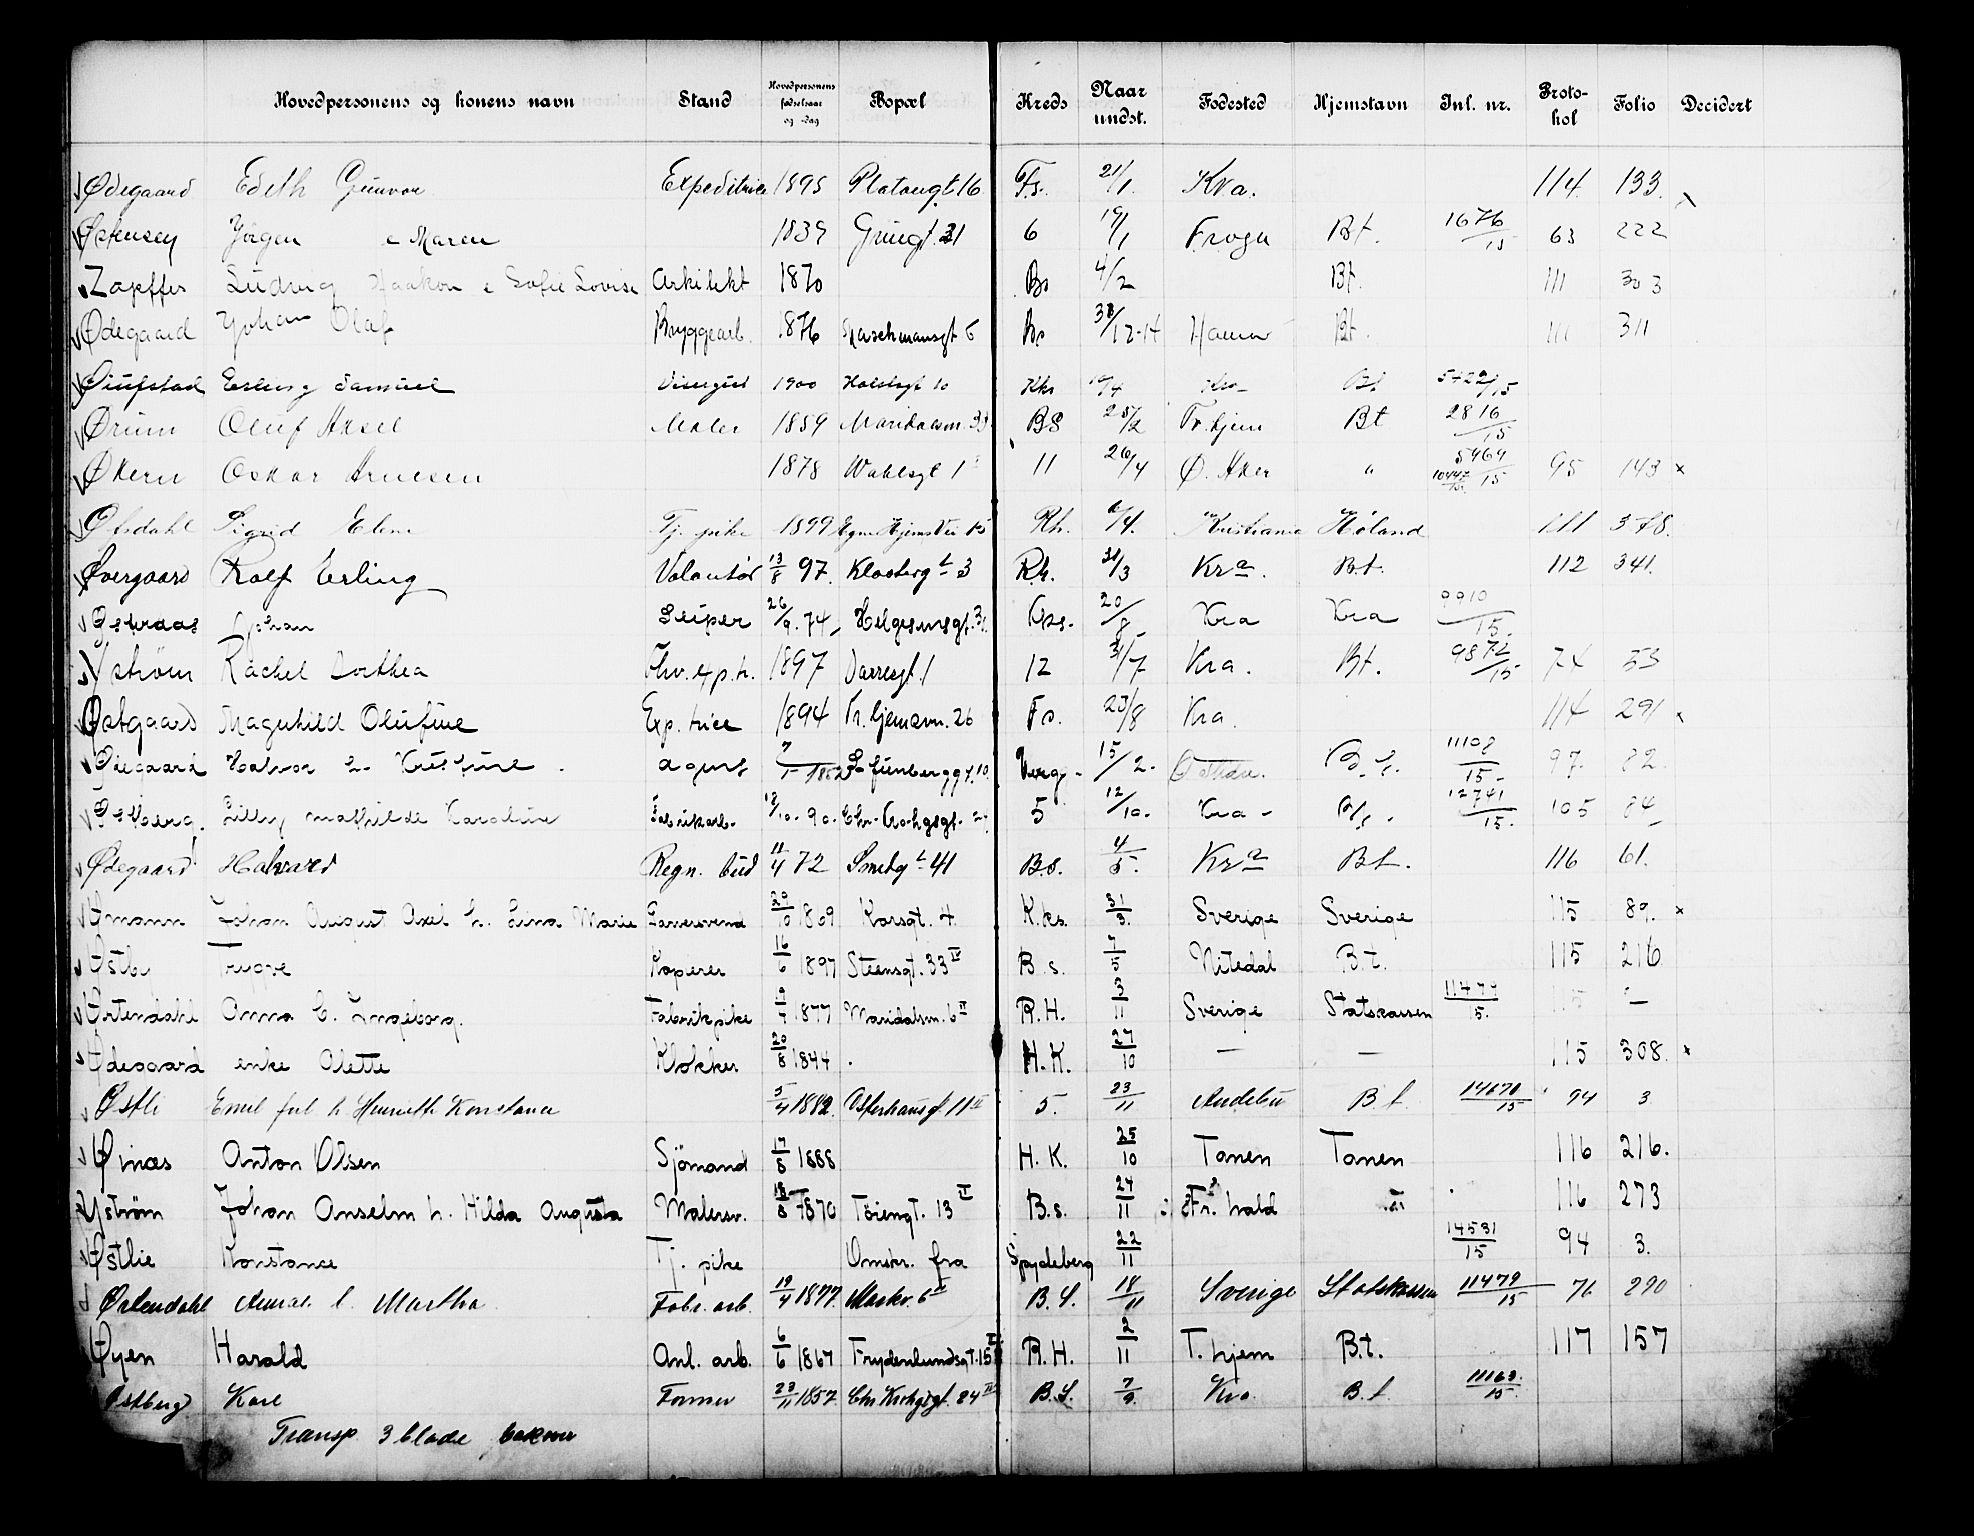 Hovedpersonens og konens navn Stand Hovedpersonens fødselsaar og -dag Bopæl Kreds Naar undst. Fødested Hjemstavn Inl. nr. Protokol Folio Decidert
Ødegaard Edith Gunvor Expeditrice 1895 Platougt 16 Fs. 21/1 Kra. 114 133
Østensen Jörgen e Maren 1839 6 19/1 Bt. 1676/15 63 222
Zapffes Ludvig Haakon e Sofie Lovise Arkitekt 1870 Bs 4/2 Bt. 111 303
Ødegaard Johan Olaf Bryggearb. 1876 Bs Hamar Bt. 111 311
Erling Samuel Visergut 1900 Holstsgt 10 Kks Kra Bt 5422/15
Ørum Oluf Axel Maler 1859 Maridalsvn. 33 BS Tr.hjem Bt 2816/15
Økern Oskar Arnesen 1878 Wahlsgt 1 11 26/4 Ø. Aker " 5969/15 10447/15 95 143 x
Ofsdahl Sigrid Elene Tj. pike 1899 Egne Hjems Vei 15 Rh. 6/4. Kristiania Høland 111 378.
Øvergaard Rolf Erling Volontør 13/8 97. Klosterg t 3 R.h. 31/3 Kra. B.t. 112 341.
Johan 26/9. 74 Helgesensgt. 20/8 Kra Kra 9910/15.
Ystrøm Rachel Dorthea Fhv. exp. tr. 1897 Darresgt. 1 12 31/7 Kra. Bt. 9872/15 74 53
Østgaard Magnhild Olufine Exp. trice 1894 Tr. hjemsvn. 26 Fs. 23/8 Kra. 114 291 x
Ødegaard Halvor h. Kristine agent 1882 15/2. 11108/15 97. 82.
Østberg. Lilly Mathilde Karoline Fabrikarb. 18/10. 90. Chr. Krohgsgt. 5 12/10. Kra 12741/15. 105 84
Ødegaard Halvard Regn. bud 11/4 72 Smedg t 41 B.s. 4/5. Kra Bt. 116 61.
Ømann Johan August Axel h. Lina Marie Garversvend 29/10 1869 Korsgt. 4. K.ks. 31/3. Sverige Sverige 115 89. x
Østby Trygve Koperer 16/6 1897 Steensgt. 33 IV B.s. 7/5 Nitedal B.t. 115 216
Ørtendahl Anna C. Ingeborg. Fabrikpike 19/4 1877 Maridalsvn. 6 II R.H. 3/11 Sverige Statskassen 11479/15. 115 —
Ødegaard enke Olette Klokker 20/8 1844 . H.K. 27/10 — — 115 308. x
Østli Emil fnl h Henriette Konstance 5/4 1882. Osterhausgt. 11 II 5. 23/11 Andebu B.t. 14670/15 94 3
Øinæs Anton Olsen Sjömand 17/8 1888 H.K. 25/10 Tanen Tanen 116 216.
Yström Johan Anselm h. Hilda Augusta Malersv. 18/8 1870 Töiengt. 13 II B.s. 24/11 Fr. hald 116 273
Østlie Konstance Tj. pike Omskr. fra Spydeberg 22/11 14531/15 94 3.
Ørtendahl C. Martha Fabr. arb. 19/4 1877. 6 II B.S. 18/11 Sverige Statskassen 11479/15 76 290
Øyen Harald Anl. arb. 6/6 1867 Frydenlundsgt. 15 R.H. 2/11 T. hjem B.t. 117 157
Østberg Karl Former 23/11 1857. Chr Krohgsgt. 84 B.S. 7/9. Kra. B.t. 11163/15.
Transp 3 blade bakover